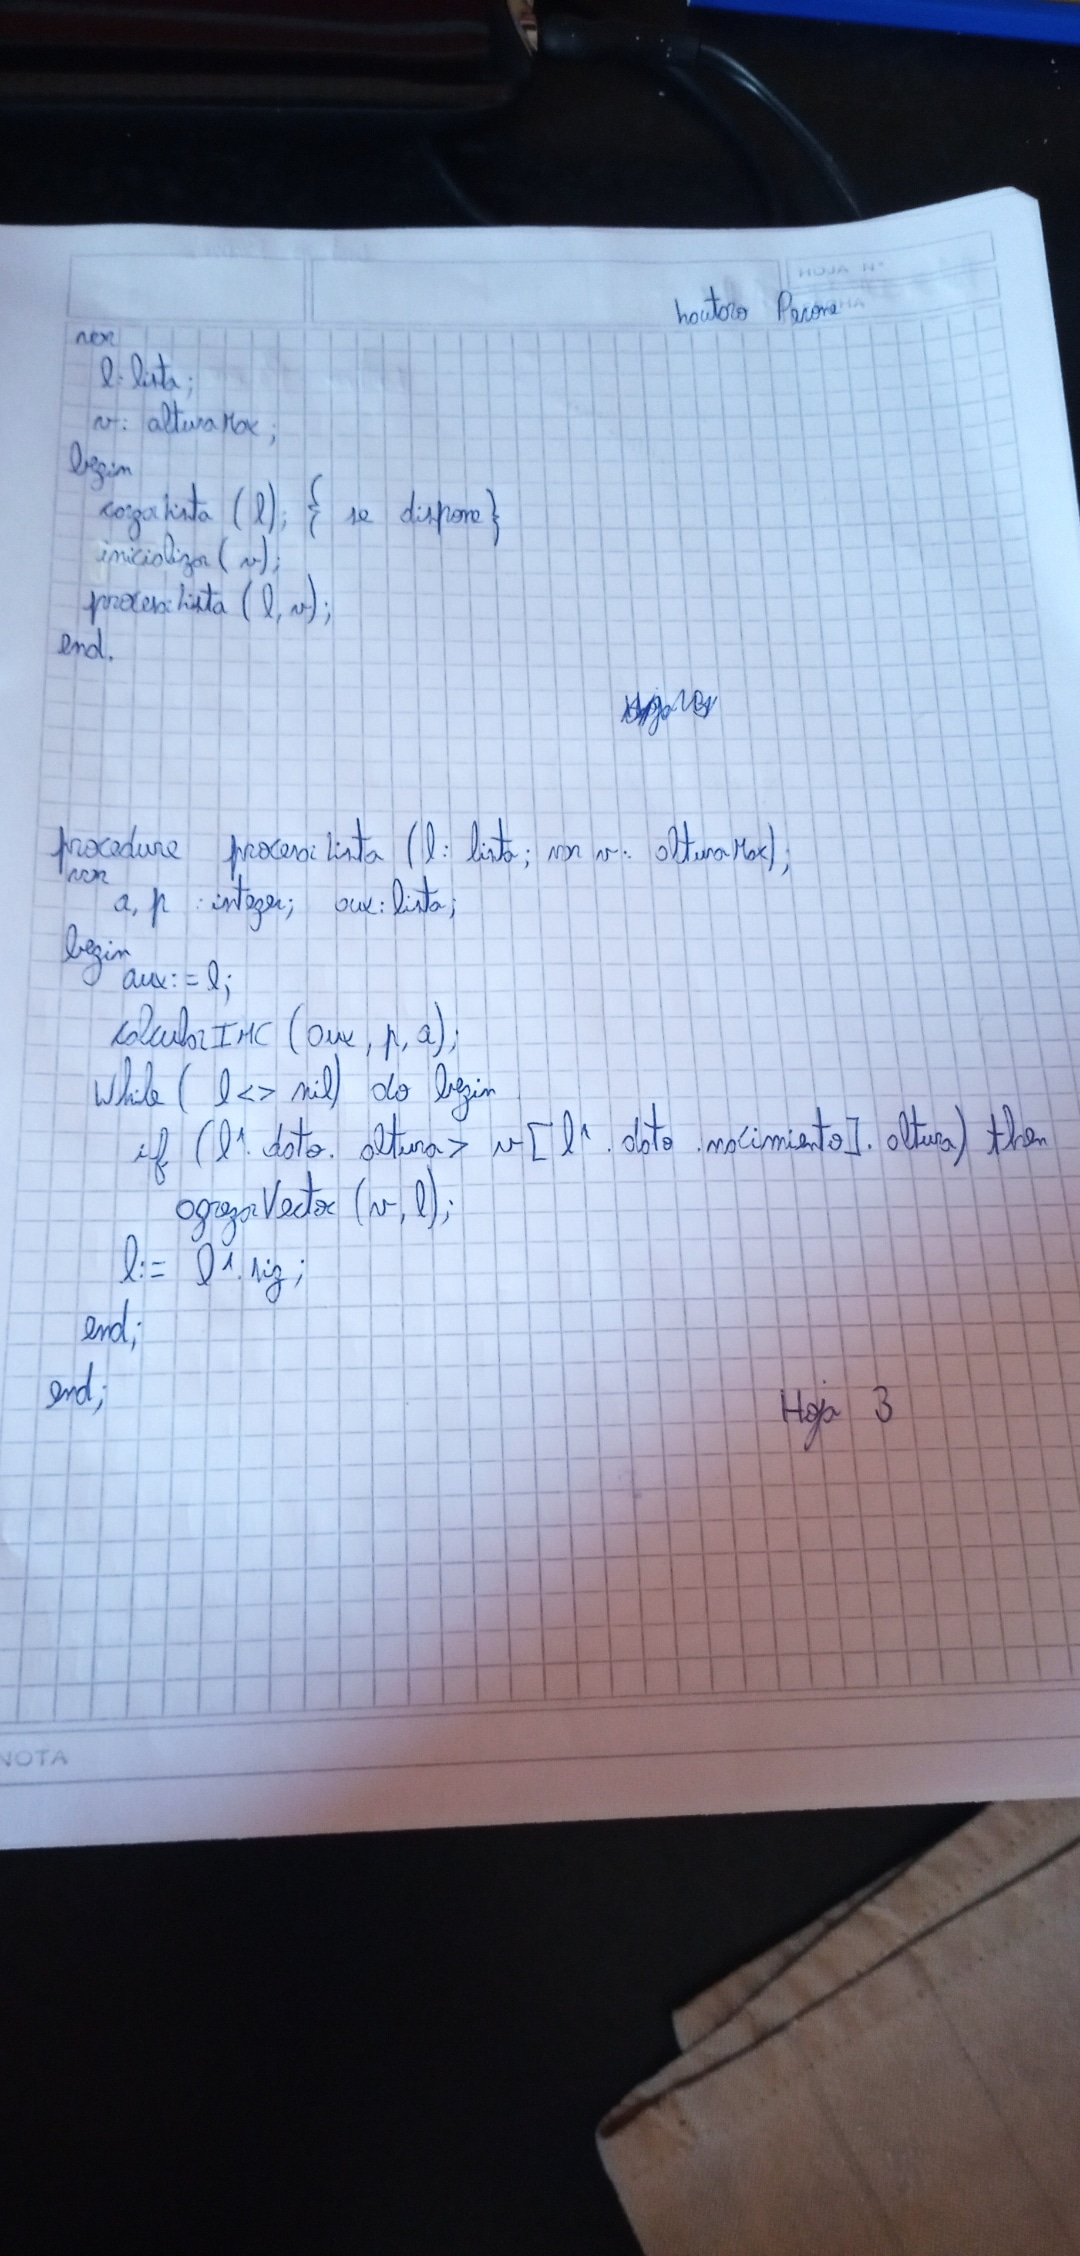 HOJA Nº
Lautaro Perone
var
l: lista;
v: alturaMax;
begin
cargarLista (l); { se dispone}
inicializar (v);
procesarLista (l, v);
end.
procedure procesarLista (l: lista; var v: alturaMax);
var
a, p : integer; aux: lista;
begin
aux:= l;
calcularIMC (aux, p, a);
While ( l <> nil) do begin
if (l^. dato. altura > v [ l^. dato .nacimiento]. altura) then
agregarVector (v, l);
l:= l^. sig;
end;
end;
Hoja 3
NOTA